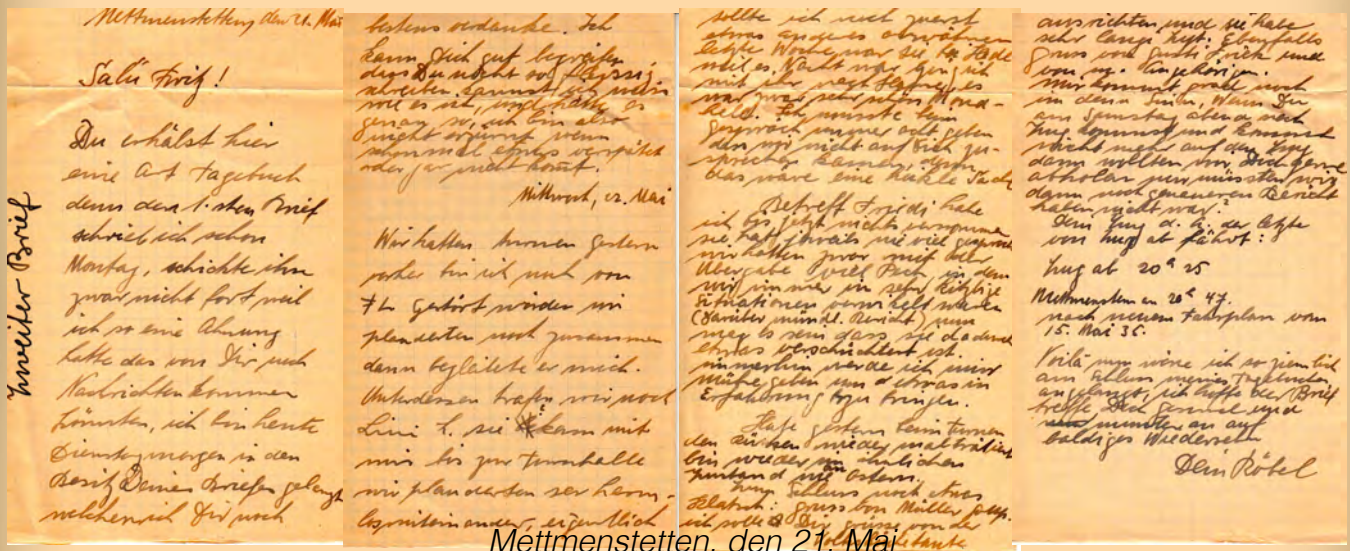 Zweiter Brief
Mettmenstetten den 21. Mai
Salü Fritz!
Du erhälst hier
eine Art Tagebuch
denn den 1. sten Brief
schrieb ich schon
Montag, schickte ihn
zwar nicht fort weil
ich so eine Ahnung
hatte das von Dir noch
Nachrichten kommen
könnten, ich bin heute
Dienstagmorgen in den
Besitz Deines Briefes gelangt
welchen ich Dir noch
bestens verdanke. Ich
kann Dich gut begreifen
dass Du nicht so fleissig
schreiben kannst, ich weiss
wie es ist, und hätte es
genau so, ich bin also
nicht erzürnt wenn
schonmal etwas verspätet
oder gar nicht kommt.
Mittwoch, 22. Mai
Wir hatten turnen gestern
vorher bin ich noch von
gestört worden wir
plauderten noch zusammen
dann begleitete er mich.
Unterdessen trafen wir noch
Lini H. sie kam mit
mir bis zur Turnhalle
wir plauderten ser
miteinander, eigentlich
sollte ich noch zuerst
etwas anderes erwähnen
letzte Woche war sie
weil es Nacht war ging ich
mit ich es
war zwar sehr schön Mond-
hell. Ich musste beim
Gespräch immer acht geben
dass wir nicht auf Dich zu
sprechen kamen, denn
das wäre eine heikle Sache
Betreff Friedi habe
ich bis jetzt nichts vernommen
sie hat jeweils nie viel gesprochen
wir hatten zwar mit der
Übergabe viel Pech in dem
wir immer in sehr kitzlige
Situationen verwickelt waren
(darüber mündl. Bericht) nun
mag es sein dass sie dadurch
etwas verschüchtert ist.
immerhin werde ich mir
Mühe geben um etwas in
Erfahrung zu bringen.
Habe gestern beim Turnen
den wieder malträtiert
bin wieder im ähnlichen
Zustand wie Ostern.
Zum Schluss noch etwas
Klatsch: Gruss von Müller
ich solle Dir grüsse von der
ausrichten und sie habe
sehr lange Zyt. Ebenfalls
Gruss von und
von m. Angehörigen.
Mir kommt grad noch
in denn Sinn, Wann Du
am Samstag abend nach
Zug kommst und kommst
nicht mehr auf den Zug
dann wollten wir Dich gerne
abholen nur müssten wir
dann noch genaueren Bericht
haben nicht war?
Dein Zug d. h. der letzte
von Zug ab fährt:
Zug ab 20h 25
Mettmensten an 20h 47.
nach neuem Fahrplan vom
15. Mai 35.
Voilà nun wäre ich so ziemlich
am Schluss meines Tagebuches
angelangt, ich hoffe der Brief
treffe Dich gesund und
munter an auf
baldiges Wiedersehn
Dein Röbel
Mettmenstetten, den 21. Mai